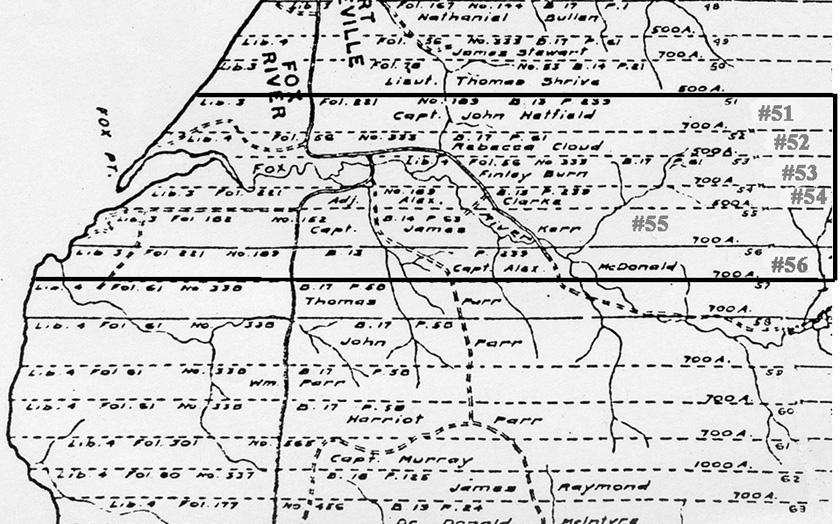 Lib. 3 Fol. 167 No. 144 B. 17 P. 1 48
Nathaniel Bullen
500 A.
Lib. 4 Fol. 56 No. 333 B. 17 P. 61 49
James Stewart
700 A.
Lib. 3 No. 53 B. 14 P. 21 50
Lieut. Thomas Shrive
500 A.
Lib. 3 Fol. 221 No. 189 B. 13 P. 239 51
Capt. John Hatfield #51
700 A.
Lib. 4 Fol. 56 No. 333 B. 17 P. 61 52
Rebecca Cloud #52
500 A.
FOX RIVER
FOX PT.
Fox
Lib. 4 Fol. 56 No 333 B. 17 P. 61 53
Finley Burn #53
700 A.
Lib. 3 Fol. 221 No. 189 B. 13 P. 239 54
Adj. Alex. Clarke #54
500 A.
RIVER
Lib. 3 Fol 182 No. 162 B. 14 P 63 55
Capt. James Kerr #55
700 A.
Lib 3 Fol 221 No 189 B. 13 P. 239 56
Capt. Alex. McDonald #56
700 A.
Lib. 4 Fol. 61 No. 338 B. 17 P. 58 57
Thomas Parr
700 A.
Lib. 4 Fol 61 No. 338 B. 17 P. 58 58
John Parr
700 A.
Lib. 4 Fol 61 No 338 B. 17 P. 58 59
Wm. Parr
700 A.
Lib. 4 Fol. 61 No 338 B. 17 P. 58 60
Harriot Parr
700 A.
Lib. 4 Fol. 301 No. 61
Capt. Murray
1000 A.
Lib. 4 Fol 60 No. 337 B. 18 P. 125 62
James Raymond
700 A.
Lib. 4 Fol. 177 No 456 B. 19 P. 24 63
Dr. Donald McIntyre